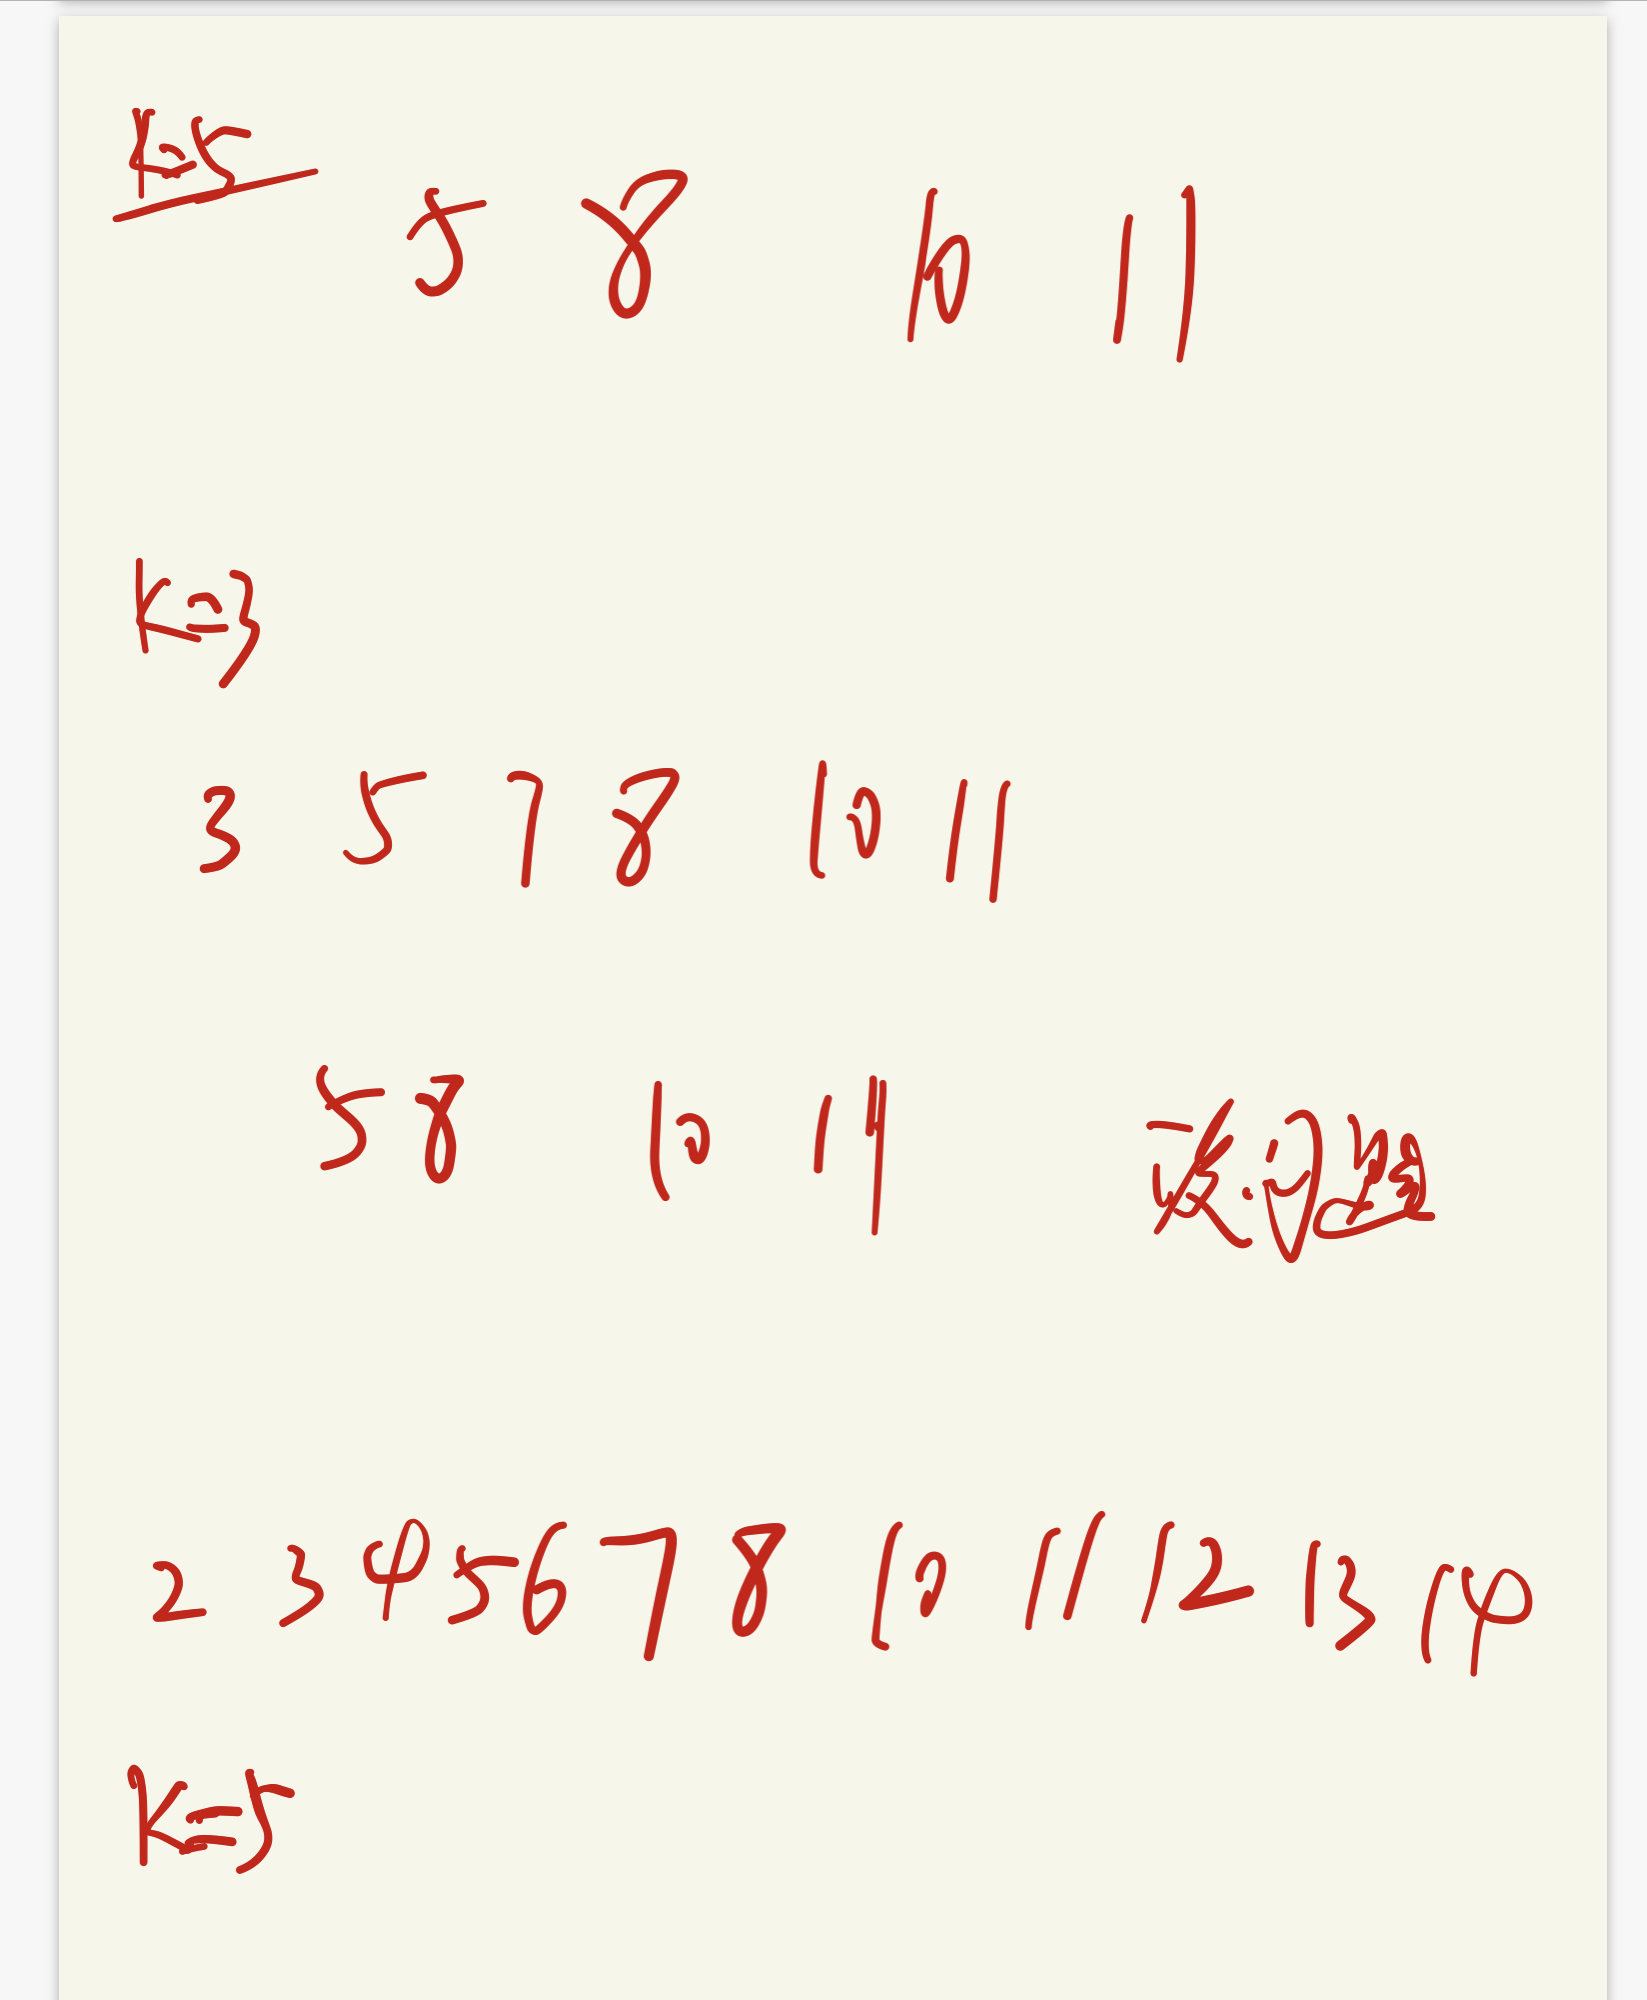 K=5
5 8 10 11
K=3
3 5 7 8 10 11
5 8 10 11 没问题
2 3 4 5 6 7 8 10 11 12 13 14
K=5